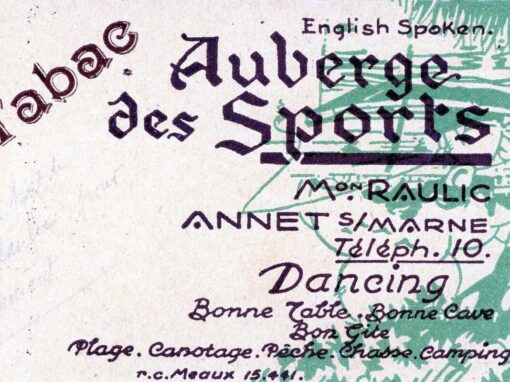 Tabac
English Spoken.
Auberge
des Sports
Mon RAULIC
ANNET S/MARNE
Téléph. 10.
Dancing
Bonne Table. Bonne Cave
Bon Gîte
Plage. Canotage. Pêche. Chasse. Camping
r.c. Meaux 15.441.